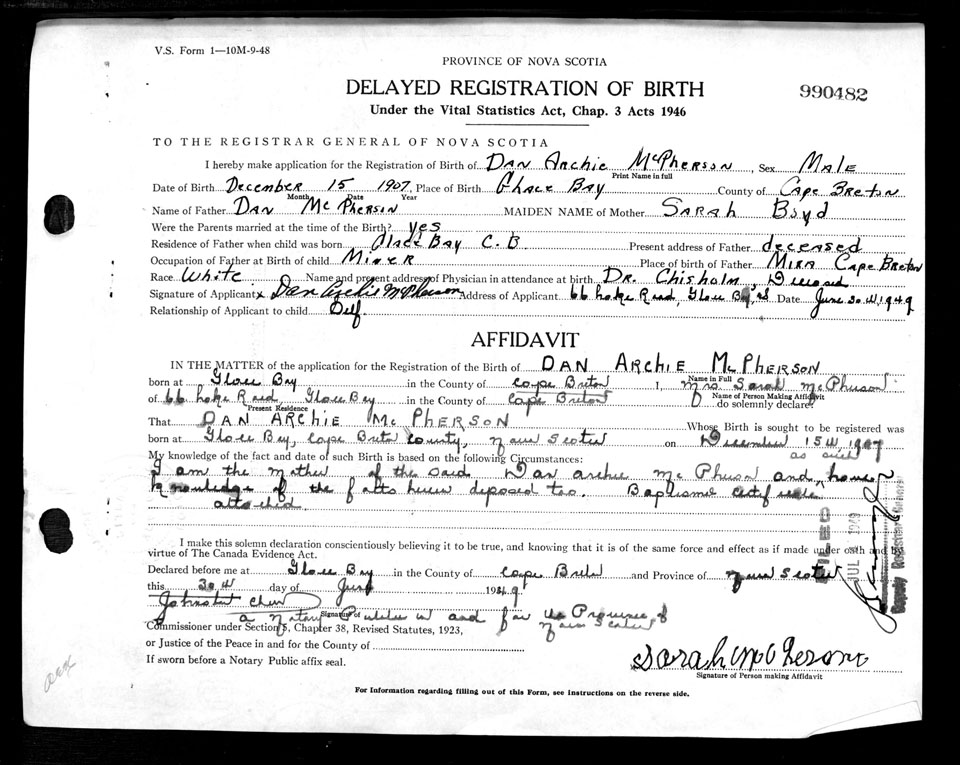 V.S. Form 1—10M-9-48
PROVINCE OF NOVA SCOTIA
DELAYED REGISTRATION OF BIRTH
990482
Under the Vital Statistics Act, Chap. 3 Acts 1946
TO THE REGISTRAR GENERAL OF NOVA SCOTIA
I hereby make application for the Registration of Birth of DAN Archie McPherson, Sex MALE
Print Name in full
Date of Birth December 15 1907, Place of Birth Glace Bay County of Cape Breton
Month Date Year
Name of Father DAN McPherson MAIDEN NAME of Mother SARAH Boyd
Were the Parents married at the time of the Birth? yes
Residence of Father when child was born Glace Bay C.B Present address of Father deceased
Occupation of Father at Birth of child Miner Place of birth of Father Mira Cape Breton
Race White Name and present address of Physician in attendance at birth Dr. Chisholm, Deceased
Signature of Applicant x Dan Archie McPherson Address of Applicant 66 Lake Road, Glace Bay, NS Date June 30th 1949
Relationship of Applicant to child Self.
AFFIDAVIT
IN THE MATTER of the application for the Registration of the Birth of DAN Archie McPherson
Name in Full
born at Glace Bay in the County of Cape Breton I, Mrs Sarah McPherson
Name of Person Making Affidavit
of 66 Lake Road, Glace Bay in the County of Cape Breton do solemnly declare:
Present Residence
That DAN ARCHIE McPHERSON Whose Birth is sought to be registered was
born at Glace Bay, Cape Breton County, Nova Scotia on December 15th 1907
My knowledge of the fact and date of such Birth is based on the following Circumstances: as such
I am the mother of the said Dan Archie McPherson and, have
knowledge of the facts herein deposed too. Baptismal certificate
attached.
I make this solemn declaration conscientiously believing it to be true, and knowing that it is of the same force and effect as if made under oath and by
virtue of The Canada Evidence Act.
Declared before me at Glace Bay in the County of Cape Breton and Province of Nova Scotia
this 30th day of June 1949
a Notary Public in and for the Province of
Nova Scotia
Signature of
Commissioner under Section 5, Chapter 38, Revised Statutes, 1923,
or Justice of the Peace in and for the County of
If sworn before a Notary Public affix seal.
Sarah McPherson
Signature of Person making Affidavit
For Information regarding filling out of this Form, see instructions on the reverse side.
FILED
JUL 1949
Deputy Registrar General